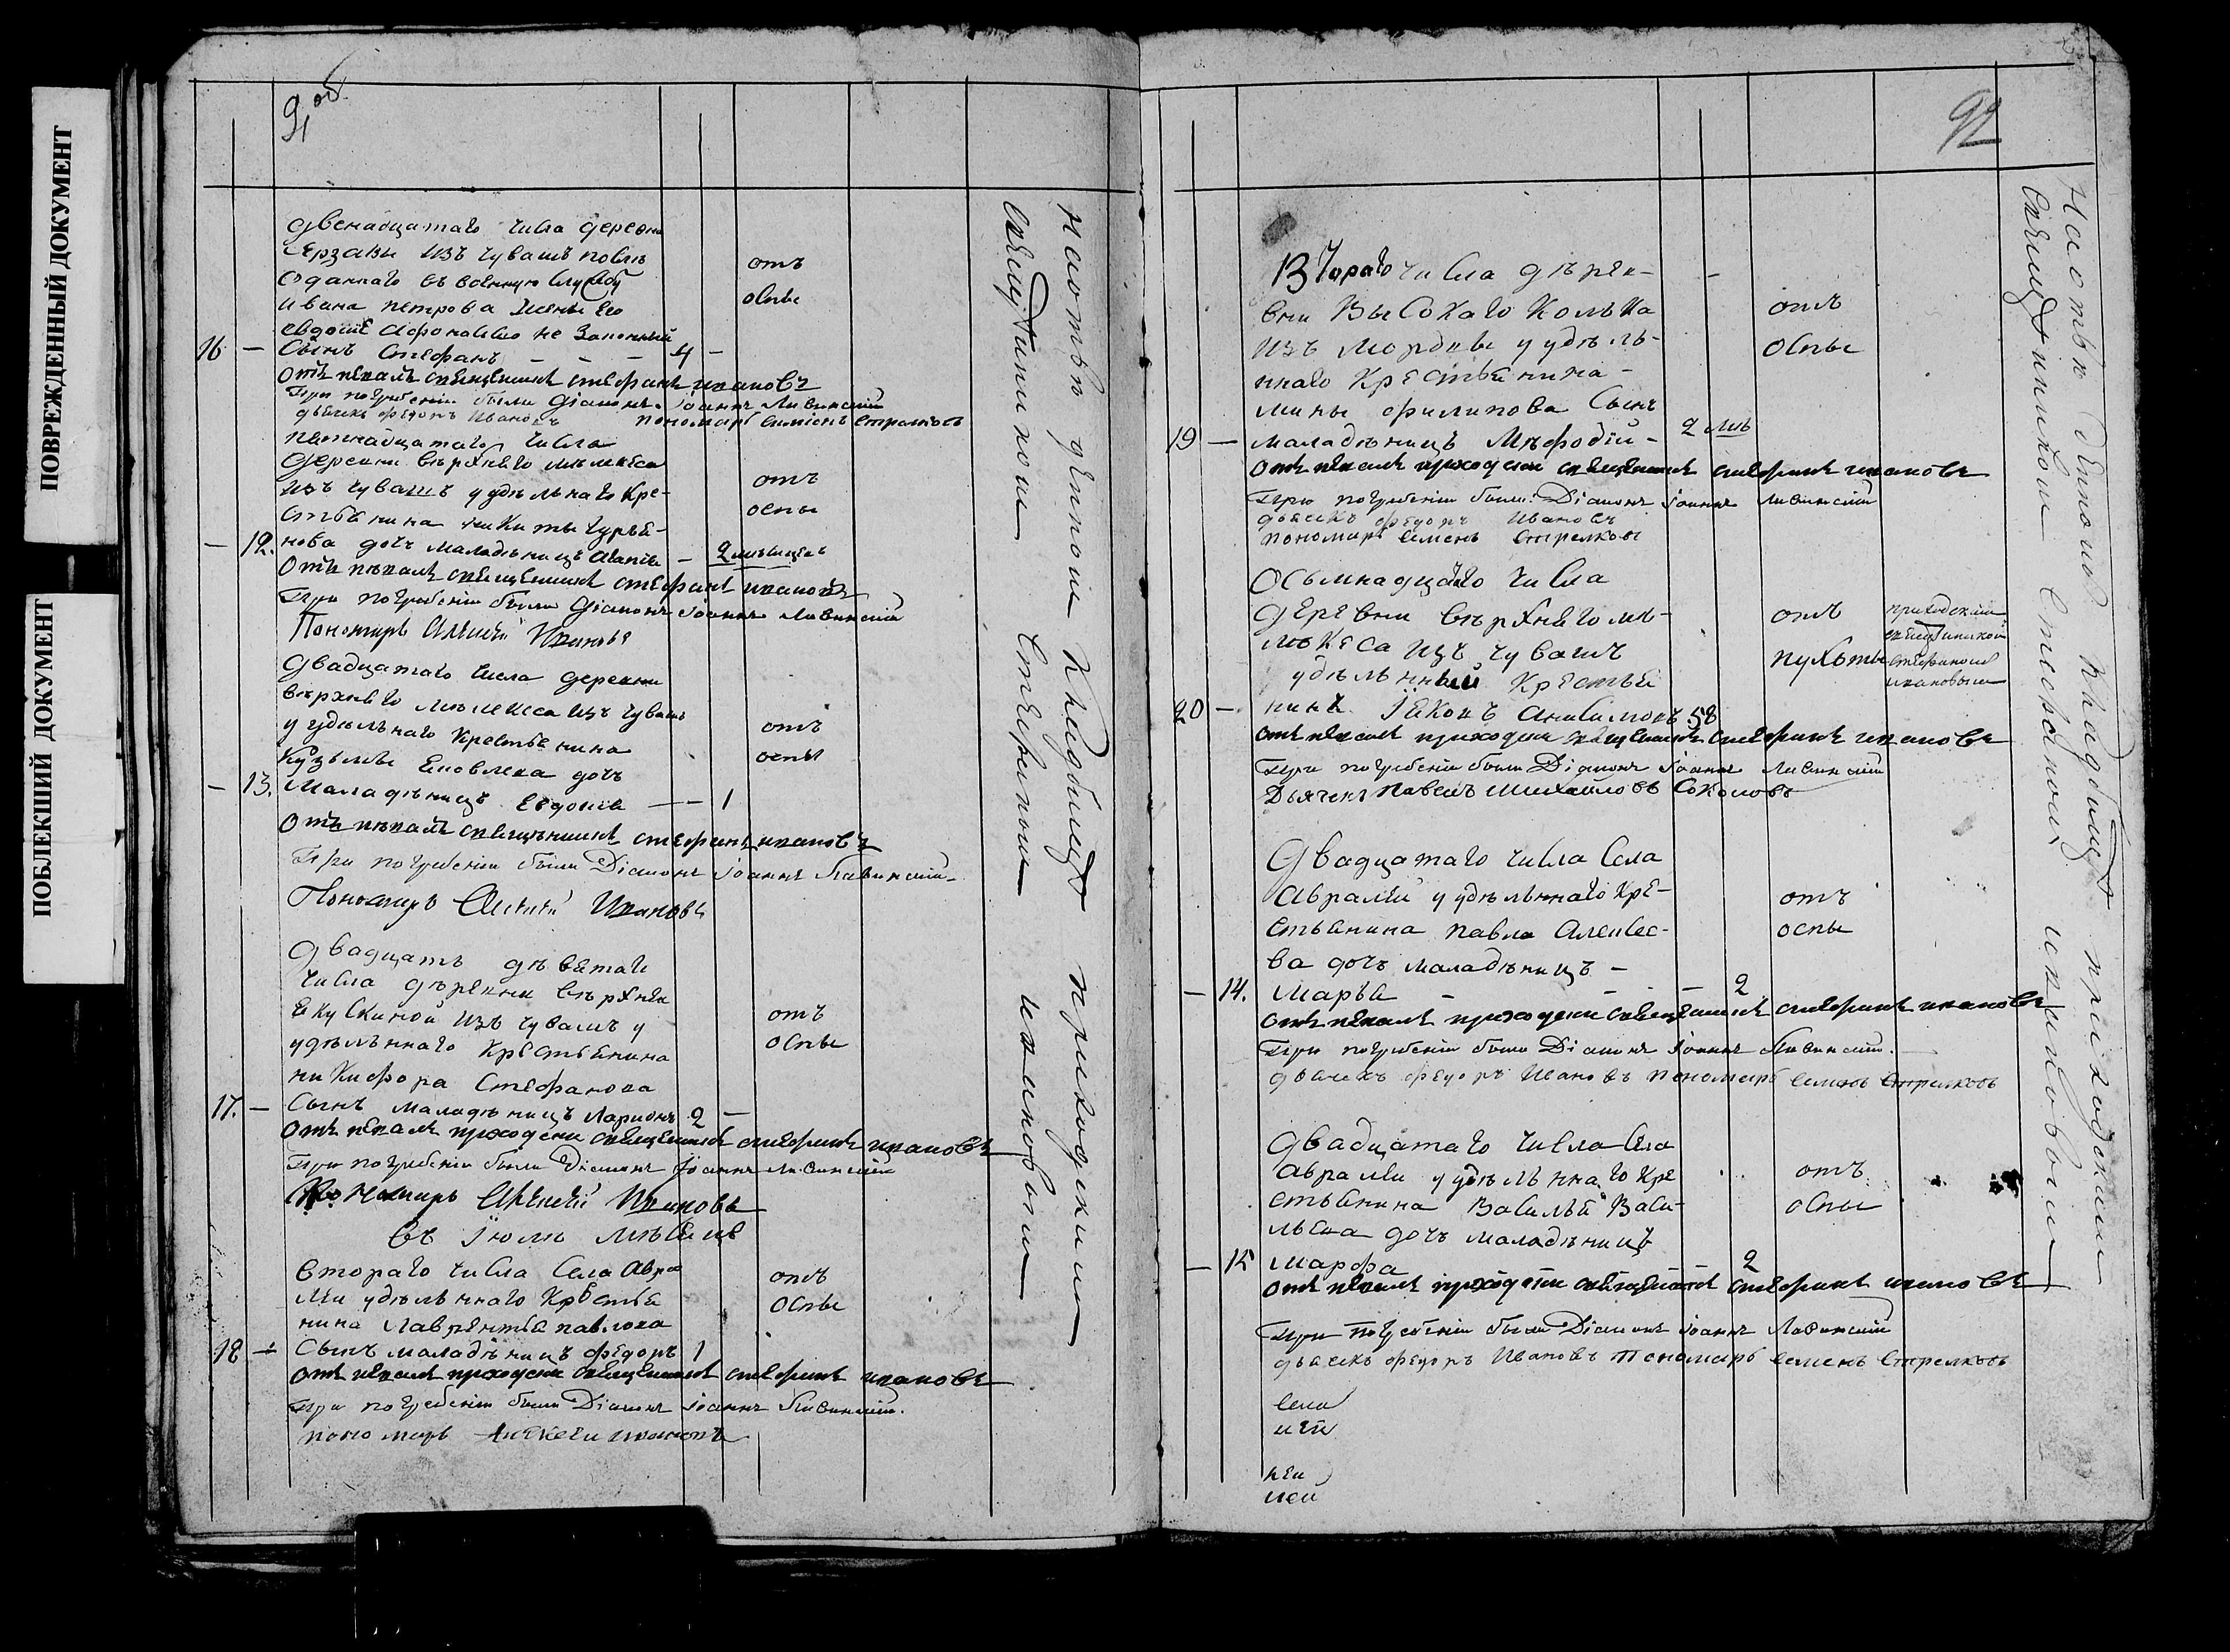 ПОВРЕЖДЕННЫЙ ДОКУМЕНТ
ПОБЛЕКШИЙ ДОКУМЕНТ
91 об
двенадцатаго числа деревни
Ерзавы изъ чувашъ послѣ
отданнаго въ военную службу
ивана петрова жены Его
незаконный
16 — Сынъ Стефанъ — — — 4 —
отъ
оспы
Отпѣвалъ священникъ стефанъ ивановъ
При погребеніи были Діаконъ Іоаннъ Ливинскій
дьячекъ Федоръ Ивановъ пономарь Симіонъ Стрелковъ
пятнадцатаго числа
деревни верхняго мелекеса
изъ чувашъ удѣльнаго кре-
стьянина никиты гурья-
— 12. нова дочь маладѣницъ — 2 мѣсицов
отъ
оспы
Отпѣвалъ священникъ стефанъ ивановъ
При погребеніи были Діаконъ Іоаннъ Ливинскій
Пономарь Алексѣй Ивановъ
двадцатаго числа деревни
верхняго мелекеса изъ чувашъ
удѣльнаго крестьянина
Кузьмы Яковлева дочь
— 13. Маладѣницъ Евдокія — — 1
отъ
оспы
Отпѣвалъ священникъ стефанъ ивановъ
При погребеніи были Діаконъ Іоаннъ Ливинскій
Пономарь Алексѣй Ивановъ
двадцать девятаго
числа деревни верхней
Якушкиной изъ чувашъ у
удѣльннаго крестьянина
никифора Стефанова
17. — Сынъ маладѣницъ Ларионъ 2 —
отъ
оспы
Отпѣвалъ приходски священникъ стефанъ ивановъ
При погребеніи были Діаконъ Іоаннъ Ливинскій
Пономарь Алексѣй Ивановъ
въ Іюлѣ мѣсяцѣ
втораго числа Села Авра
лѣи удѣльннаго крестья
нина Лаврентья павлова
18 — Сынъ маладѣницъ Федоръ 1
отъ
оспы
Отпѣвалъ приходски священникъ стефанъ ивановъ
При погребеніи были Діаконъ Іоаннъ Ливинскій.
пономарь Алексѣи ивановъ
На отведенномъ кладбищѣ приходскимъ
священникомъ Стефаномъ ивановымъ
92
Втораго числа дерев-
вни Высокаго Колька
изъ Мордвы удѣль-
ннаго крестьянина —
мины филипова Сынъ
19 — маладѣницъ Мефодій — 2 мѣ
отъ
оспы
Отпѣвалъ приходски священникъ стефанъ ивановъ
При погребеніи были Діаконъ Іоаннъ Ливинскій
дьячекъ Федоръ Ивановъ
пономарь Семенъ Стрелковъ
осьмнадцатаго числа
деревни верхняго ме-
лекеса изъ чувашъ
удѣльнный крестья
20 — нинъ Іаковъ Анисимовъ 58
отъ
пухоты
приходскимъ
священникомъ
стефаномъ
ивановымъ
Отпѣвалъ приходски священникъ стефанъ ивановъ
При погребеніи были Діаконъ Іоаннъ Ливинскій
Дьячекъ Павелъ Михайловъ Соколовъ
двадцатаго числа села
авралѣи удѣльннаго кре-
стьянина павла Алексѣе-
ва дочь маладѣницъ —
— 14. Марья — — — 2
отъ
оспы
Отпѣвалъ приходски священникъ стефанъ ивановъ
При погребеніи были Діаконъ Іоаннъ Ливинскій.
дьячекъ Федоръ Ивановъ пономарь Семенъ Стрелковъ
двадцатаго числа Села
авралѣи удѣльннаго кре
стьянина Василья Васи-
льева дочь маладѣницъ
— 15 Марфа 2
отъ
оспы
Отпѣвалъ приходски священникъ стефанъ ивановъ
При погребеніи были Діаконъ Іоаннъ Ливинскій
дьячекъ Федоръ Ивановъ Пономарь Семенъ Стрелковъ
На отведенномъ кладбищѣ приходскимъ
священникомъ Стефаномъ ивановымъ